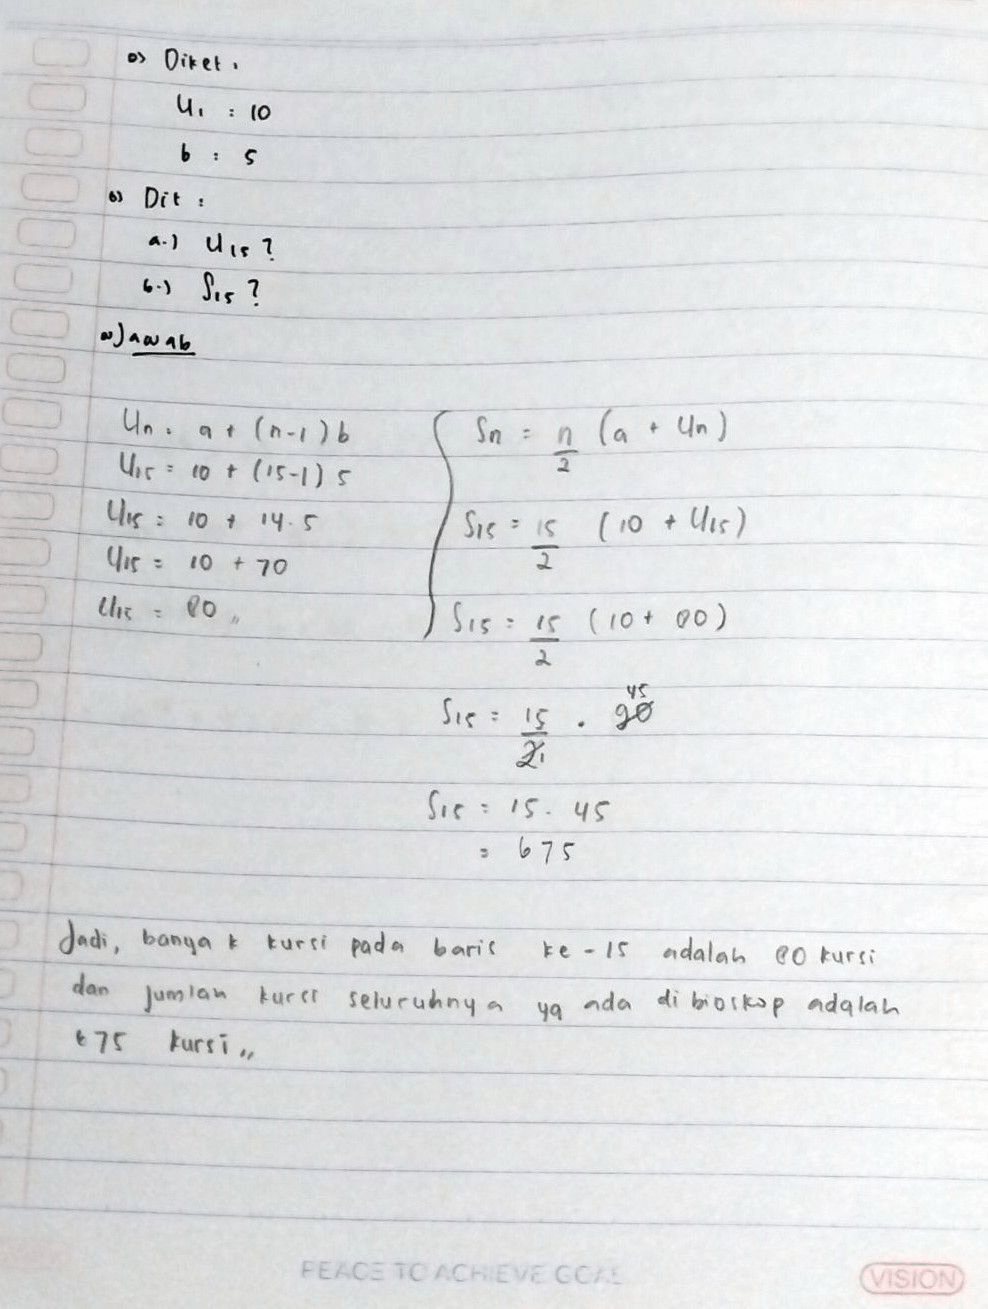 Diket :
U₁ : 10
b : 5
Dit :
a.) U₁₅ ?
b.) S₁₅ ?
Jawab
Un = a + (n-1) b
U₁₅ = 10 + (15-1) 5
U₁₅ = 10 + 14.5
U₁₅ = 10 + 70
U₁₅ = 80 ,,
Sn = n/2 (a + Un)
S₁₅ = 15/2 (10 + U₁₅)
S₁₅ = 15/2 (10 + 80)
45
S₁₅ = 15/2 . 90
1
S₁₅ = 15. 45
= 675
Jadi, banyak kursi pada baris ke - 15 adalah 80 kursi
dan jumlah kursi seluruhnya yg ada di bioskop adalah
675 kursi ,,
PEACE TO ACHIEVE GOAL
VISION